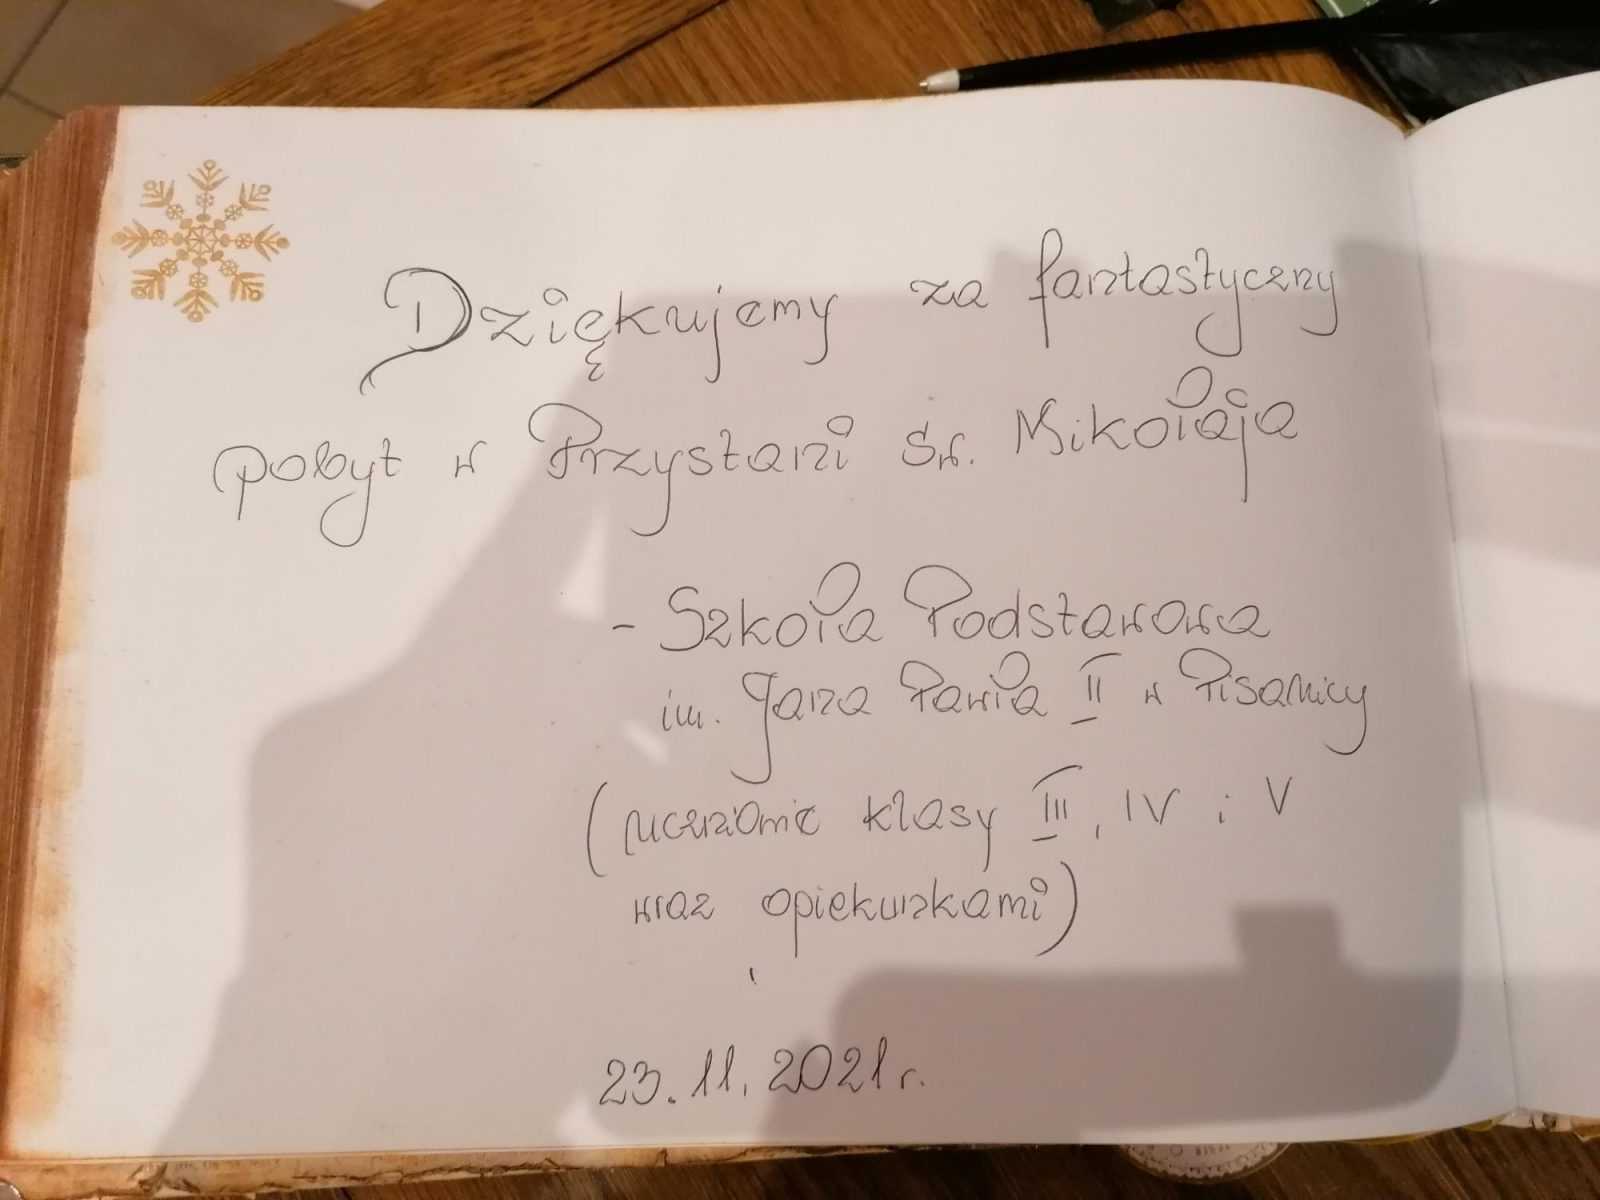 Dziękujemy za fantastyczny
pobyt w Przystani św. Mikołaja
- Szkoła Podstawowa
im. Jana Pawła II w Pisanicy
(uczniowie klasy III, IV i V
wraz opiekunkami)
23.11.2021r.